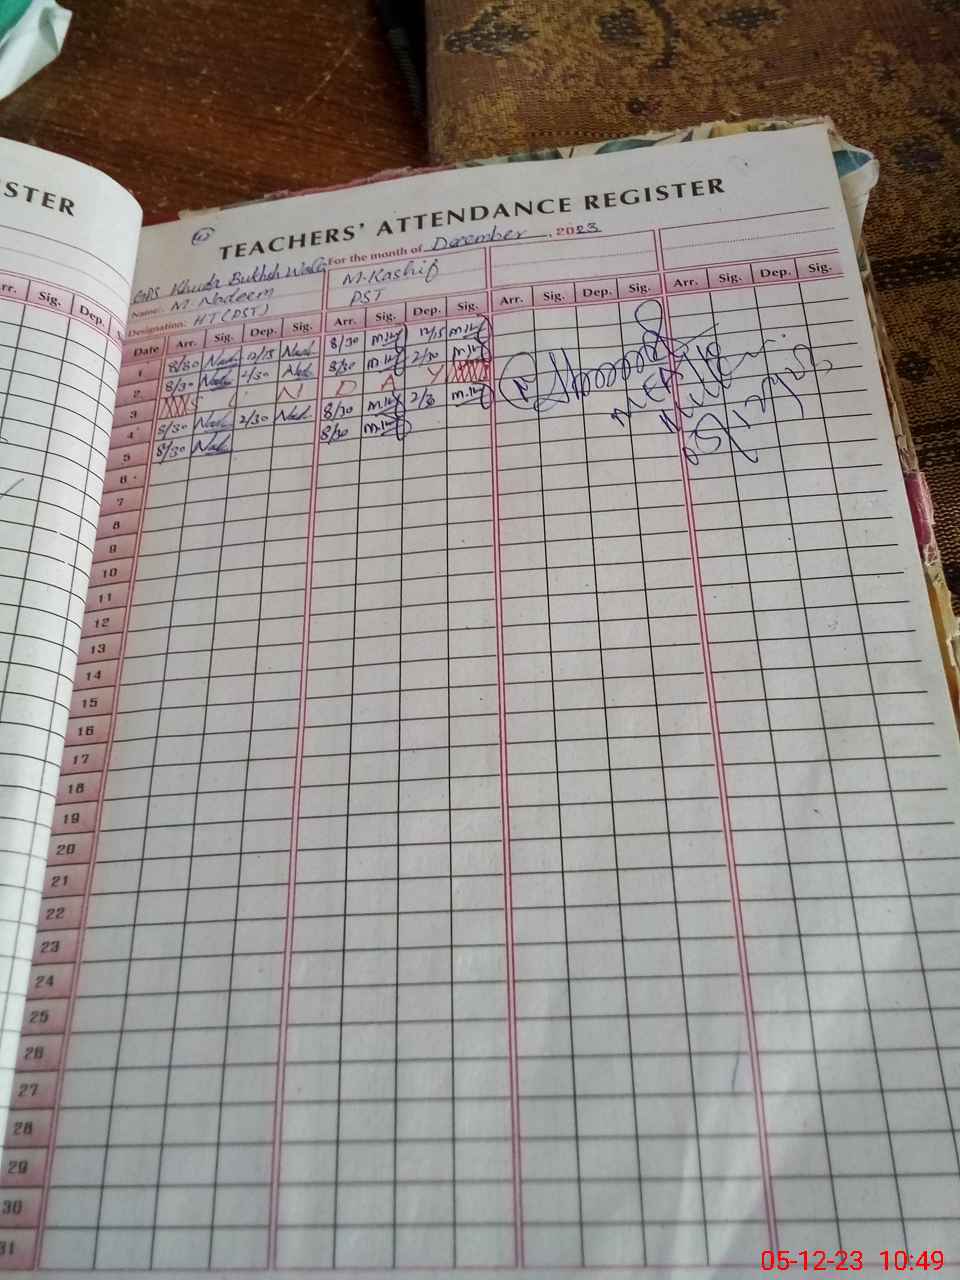 STER
TEACHERS' ATTENDANCE REGISTER
For the month of December, 2023
GPS Khuda Bukhsh Wala
Name: M. Nadeem M. Kashif
Designation: HT (PST) PST
rr. Sig. Dep. S
Date Arr. Sig. Dep. Sig. Arr. Sig. Dep. Sig. Arr. Sig. Dep. Sig. Arr. Sig. Dep. Sig.
1 8/30 12/15 8/30 12/15
2 8/30 2/30 8/30 2/30
3 S U N D A Y
4 8/30 2/30 8/30 2/3
5 8/30 8/30
6
7
8
9
10
11
12
13
14
15
16
17
18
19
20
21
22
23
24
25
26
27
28
29
30
31
05-12-23 10:49